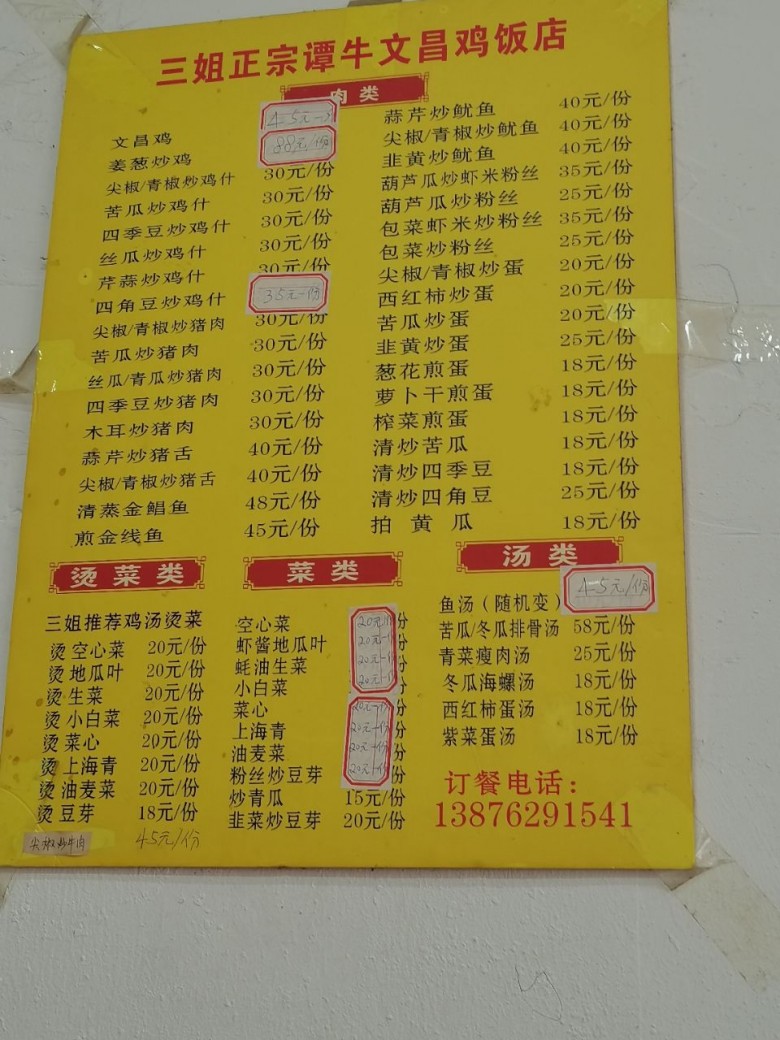 三姐正宗谭牛文昌鸡饭店
肉类
文昌鸡 45元一
姜葱炒鸡 88元/份
尖椒/青椒炒鸡什 30元/份
苦瓜炒鸡什 30元/份
四季豆炒鸡什 30元/份
丝瓜炒鸡什 30元/份
芹蒜炒鸡什 30元/份
四角豆炒鸡什 35元一份
尖椒/青椒炒猪肉 30元/份
苦瓜炒猪肉 30元/份
丝瓜/青瓜炒猪肉 30元/份
四季豆炒猪肉 30元/份
木耳炒猪肉 30元/份
蒜芹炒猪舌 40元/份
尖椒/青椒炒猪舌 40元/份
清蒸金鲳鱼 48元/份
煎金线鱼 45元/份
蒜芹炒鱿鱼 40元/份
尖椒/青椒炒鱿鱼 40元/份
韭黄炒鱿鱼 40元/份
葫芦瓜炒虾米粉丝 35元/份
葫芦瓜炒粉丝 25元/份
包菜虾米炒粉丝 35元/份
包菜炒粉丝 25元/份
尖椒/青椒炒蛋 20元/份
西红柿炒蛋 20元/份
苦瓜炒蛋 20元/份
韭黄炒蛋 25元/份
葱花煎蛋 18元/份
萝卜干煎蛋 18元/份
榨菜煎蛋 18元/份
清炒苦瓜 18元/份
清炒四季豆 18元/份
清炒四角豆 25元/份
拍黄瓜 18元/份
烫菜类
三姐推荐鸡汤烫菜
烫空心菜 20元/份
烫地瓜叶 20元/份
烫生菜 20元/份
烫小白菜 20元/份
烫菜心 20元/份
烫上海青 20元/份
烫油麦菜 20元/份
烫豆芽 18元/份
尖椒炒牛肉 45元/份
菜类
空心菜 20元一份
虾酱地瓜叶 20元一份
蚝油生菜 20元一份
小白菜 20元一份
菜心 20元一份
上海青 20元一份
油麦菜 20元一份
粉丝炒豆芽 20元一份
炒青瓜 15元/份
韭菜炒豆芽 20元/份
汤类
鱼汤（随机变） 45元/份
苦瓜/冬瓜排骨汤 58元/份
青菜瘦肉汤 25元/份
冬瓜海螺汤 18元/份
西红柿蛋汤 18元/份
紫菜蛋汤 18元/份
订餐电话：
13876291541